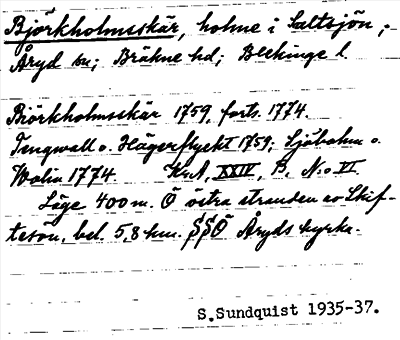 Björkholmsskär, holme i Saltsjön;
Åryd sn; Bräkne hd; Blekinge l.
Biörkholmsskär 1759, forts. 1774.
Tengwall o. Hägerflycht 1759; Sjöbohm o.
Wolin 1774. KrA, XXIV, B, N:o VI.
Läge 400 m. Ö östra stranden av Skif-
tesön, bel. 5,8 km. SSÖ Åryds kyrka.
S.Sundquist 1935-37.